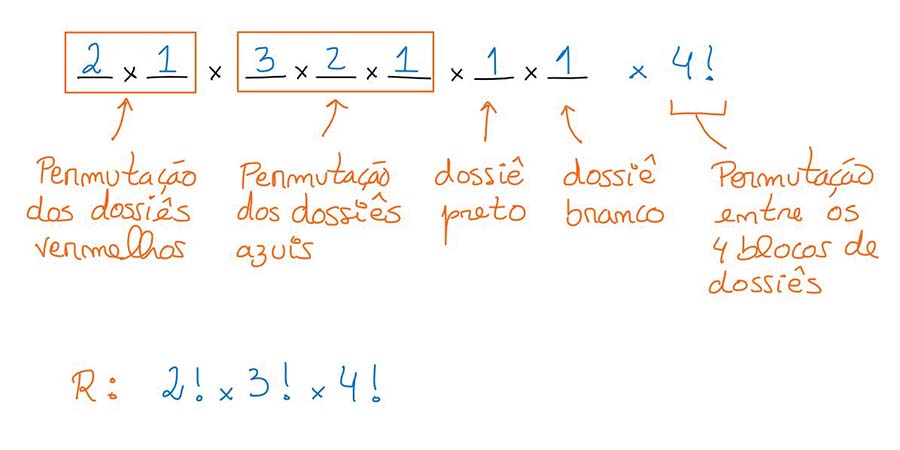 2 × 1 × 3 × 2 × 1 × 1 × 1 × 4!
Permutação
dos dossiês
vermelhos
Permutação
dos dossiês
azuis
dossiê
preto
dossiê
branco
Permutação
entre os
4 blocos de
dossiês
R: 2! × 3! × 4!